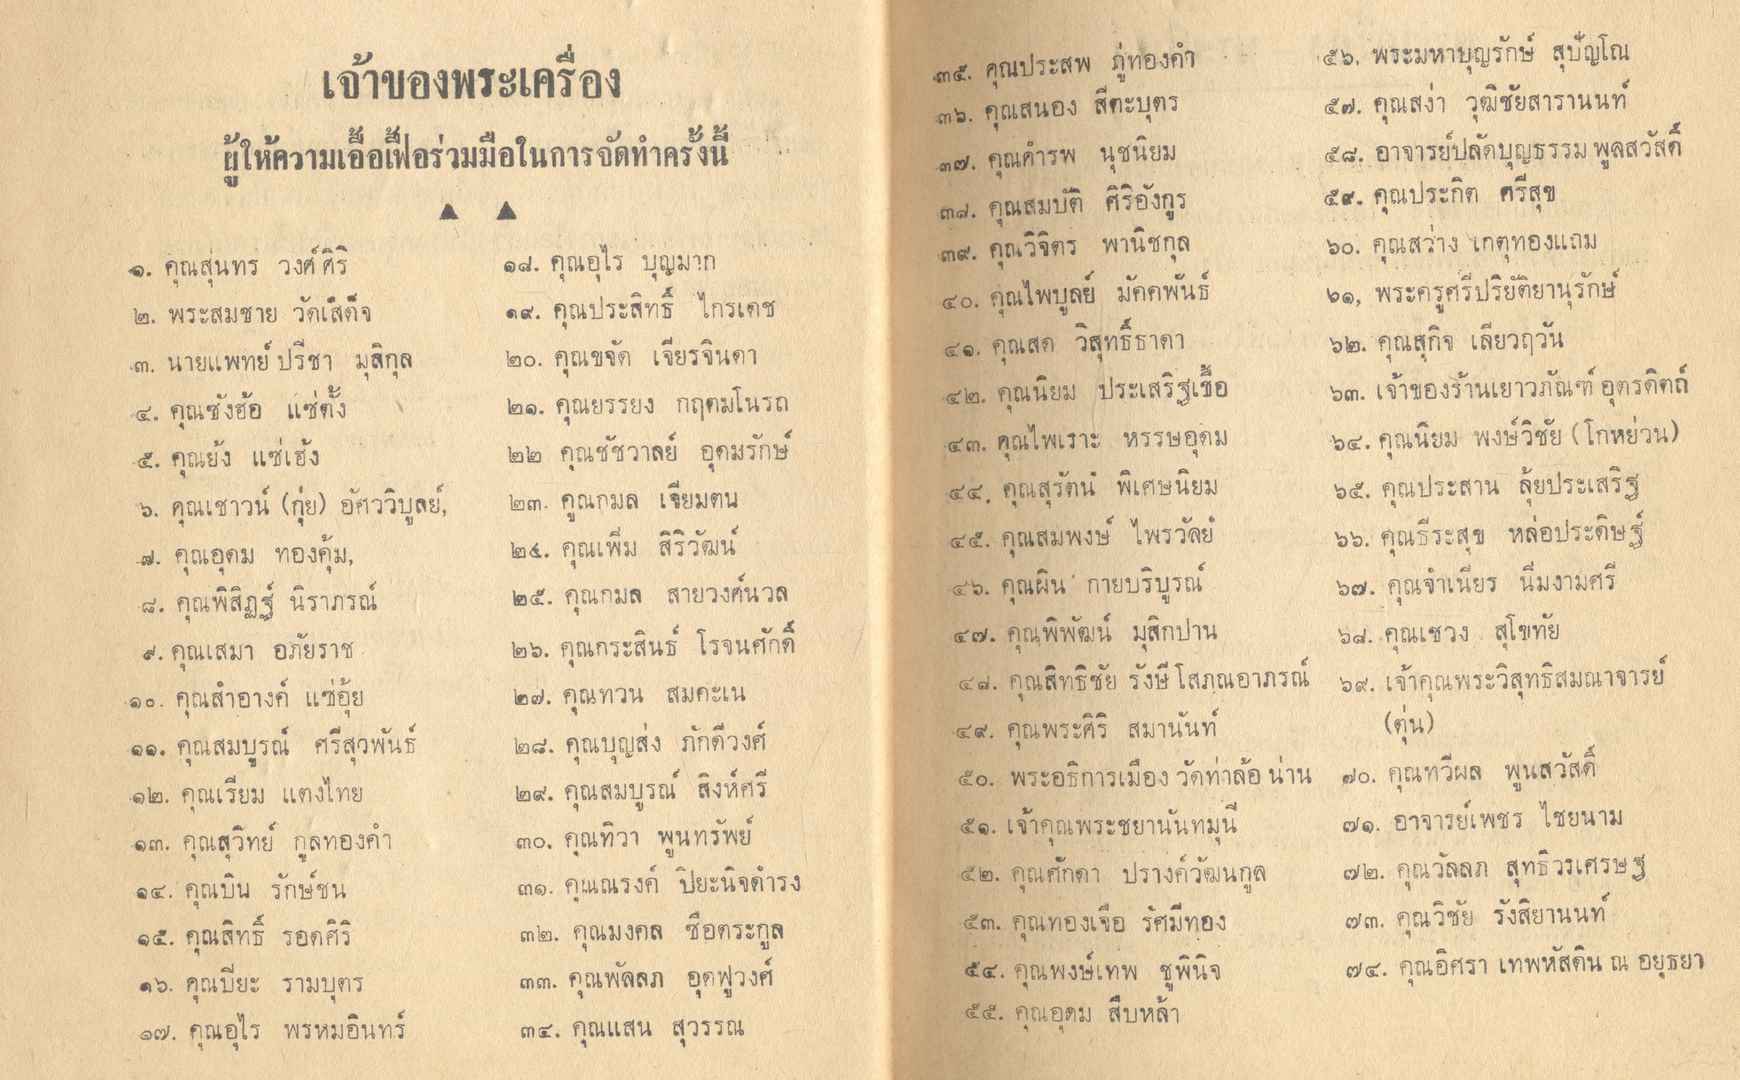 เจ้าของพระเครื่อง
ผู้ให้ความเอื้อเฟื้อร่วมมือในการจัดทำครั้งนี้
▲ ▲
๑. คุณสุนทร วงศ์ศิริ
๒. พระสมชาย วัดเสด็จ
๓. นายแพทย์ปรีชา มุสิกุล
๔. คุณซังฮ้อ แซ่ตั้ง
๕. คุณย้ง แซ่เฮ้ง
๖. คุณเชาวน์ (กุ่ย) อัศววิบูลย์,
๗. คุณอุดม ทองคุ้ม,
๘. คุณพิสิฏฐ์ นิราภรณ์
๙. คุณเสมา อภัยราช
๑๐. คุณสำอางค์ แซ่อุ้ย
๑๑. คุณสมบูรณ์ ศรีสุวพันธ์
๑๒. คุณเรียม แตงไทย
๑๓. คุณสุวิทย์ กูลทองคำ
๑๔. คุณบิน รักษ์ชน
๑๕. คุณสิทธิ์ รอดศิริ
๑๖. คุณปิยะ รามบุตร
๑๗. คุณอุไร พรหมอินทร์
๑๘. คุณอุไร บุญมาก
๑๙. คุณประสิทธิ์ ไกรเดช
๒๐. คุณขจัด เจียรจินดา
๒๑. คุณยรรยง กฤดมโนรถ
๒๒ คุณชัชวาลย์ อุดมรักษ์
๒๓. คูณกมล เจียมตน
๒๔. คุณเพิ่ม สิริวัฒน์
๒๕. คุณกมล สายวงศ์นวล
๒๖. คุณกระสินธ์ โรจนศักดิ์
๒๗. คุณทวน สมคะเน
๒๘. คุณบุญส่ง ภักดีวงศ์
๒๙. คุณสมบูรณ์ สิงห์ศรี
๓๐. คุณทิวา พูนทรัพย์
๓๑. คุณณรงค์ ปิยะนิจดำรง
๓๒. คุณมงคล ซื่อตระกูล
๓๓. คุณพัลลภ อุดฟูวงศ์
๓๔. คุณแสน สุวรรณ
๓๕. คุณประสพ ภู่ทองคำ
๓๖. คุณสนอง สีตะบุตร
๓๗. คุณคำรพ นุชนิยม
๓๘. คุณสมบัติ ศิริอังกูร
๓๙. คุณวิจิตร พานิชกุล
๔๐. คุณไพบูลย์ มัคคพันธ์
๔๑. คุณสด วิสุทธิ์ธาดา
๔๒. คุณนิยม ประเสริฐเชื้อ
๔๓. คุณไพเราะ หรรษอุดม
๔๔. คุณสุรัตน์ พิเศษนิยม
๔๕. คุณสมพงษ์ ไพรวัลย์
๔๖. คุณผิน กายบริบูรณ์
๔๗. คุณพิพัฒน์ มุสิกปาน
๔๘. คุณสิทธิชัย รังษีโสภณอาภรณ์
๔๙. คุณพระศิริ สมานันท์
๕๐. พระอธิการเมือง วัดท่าล้อ น่าน
๕๑. เจ้าคุณพระชยานันทมุนี
๕๒. คุณศักดา ปรางค์วัฒนกูล
๕๓. คุณทองเจือ รัศมีทอง
๕๔. คุณพงษ์เทพ ชูพินิจ
๕๕. คุณอุดม สืบหล้า
๕๖. พระมหาบุญรักษ์ สุปัญโณ
๕๗. คุณสง่า วุฒิชัยสารานนท์
๕๘. อาจารย์ปลัดบุญธรรม พูลสวัสดิ์
๕๙. คุณประกิต ศรีสุข
๖๐. คุณสว่าง เกตุทองแถม
๖๑, พระครูศรีปริยัติยานุรักษ์
๖๒. คุณสุกิจ เลียวฤวัน
๖๓. เจ้าของร้านเยาวภัณฑ์ อุตรดิตถ์
๖๔. คุณนิยม พงษ์วิชัย (โกหย่วน)
๖๕. คุณประสาน ลุ้ยประเสริฐ
๖๖. คุณธีระสุข หล่อประดิษฐ์
๖๗. คุณจำเนียร นิ่มงามศรี
๖๘. คุณเชวง สุโขทัย
๖๙. เจ้าคุณพระวิสุทธิสมณาจารย์
(ตุ่น)
๗๐. คุณทวีผล พูนสวัสดิ์
๗๑. อาจารย์เพชร ไชยนาม
๗๒. คุณวัลลภ สุทธิวรเศรษฐ
๗๓. คุณวิชัย รังสิยานนท์
๗๔. คุณอิศรา เทพหัสดิน ณ อยุธยา